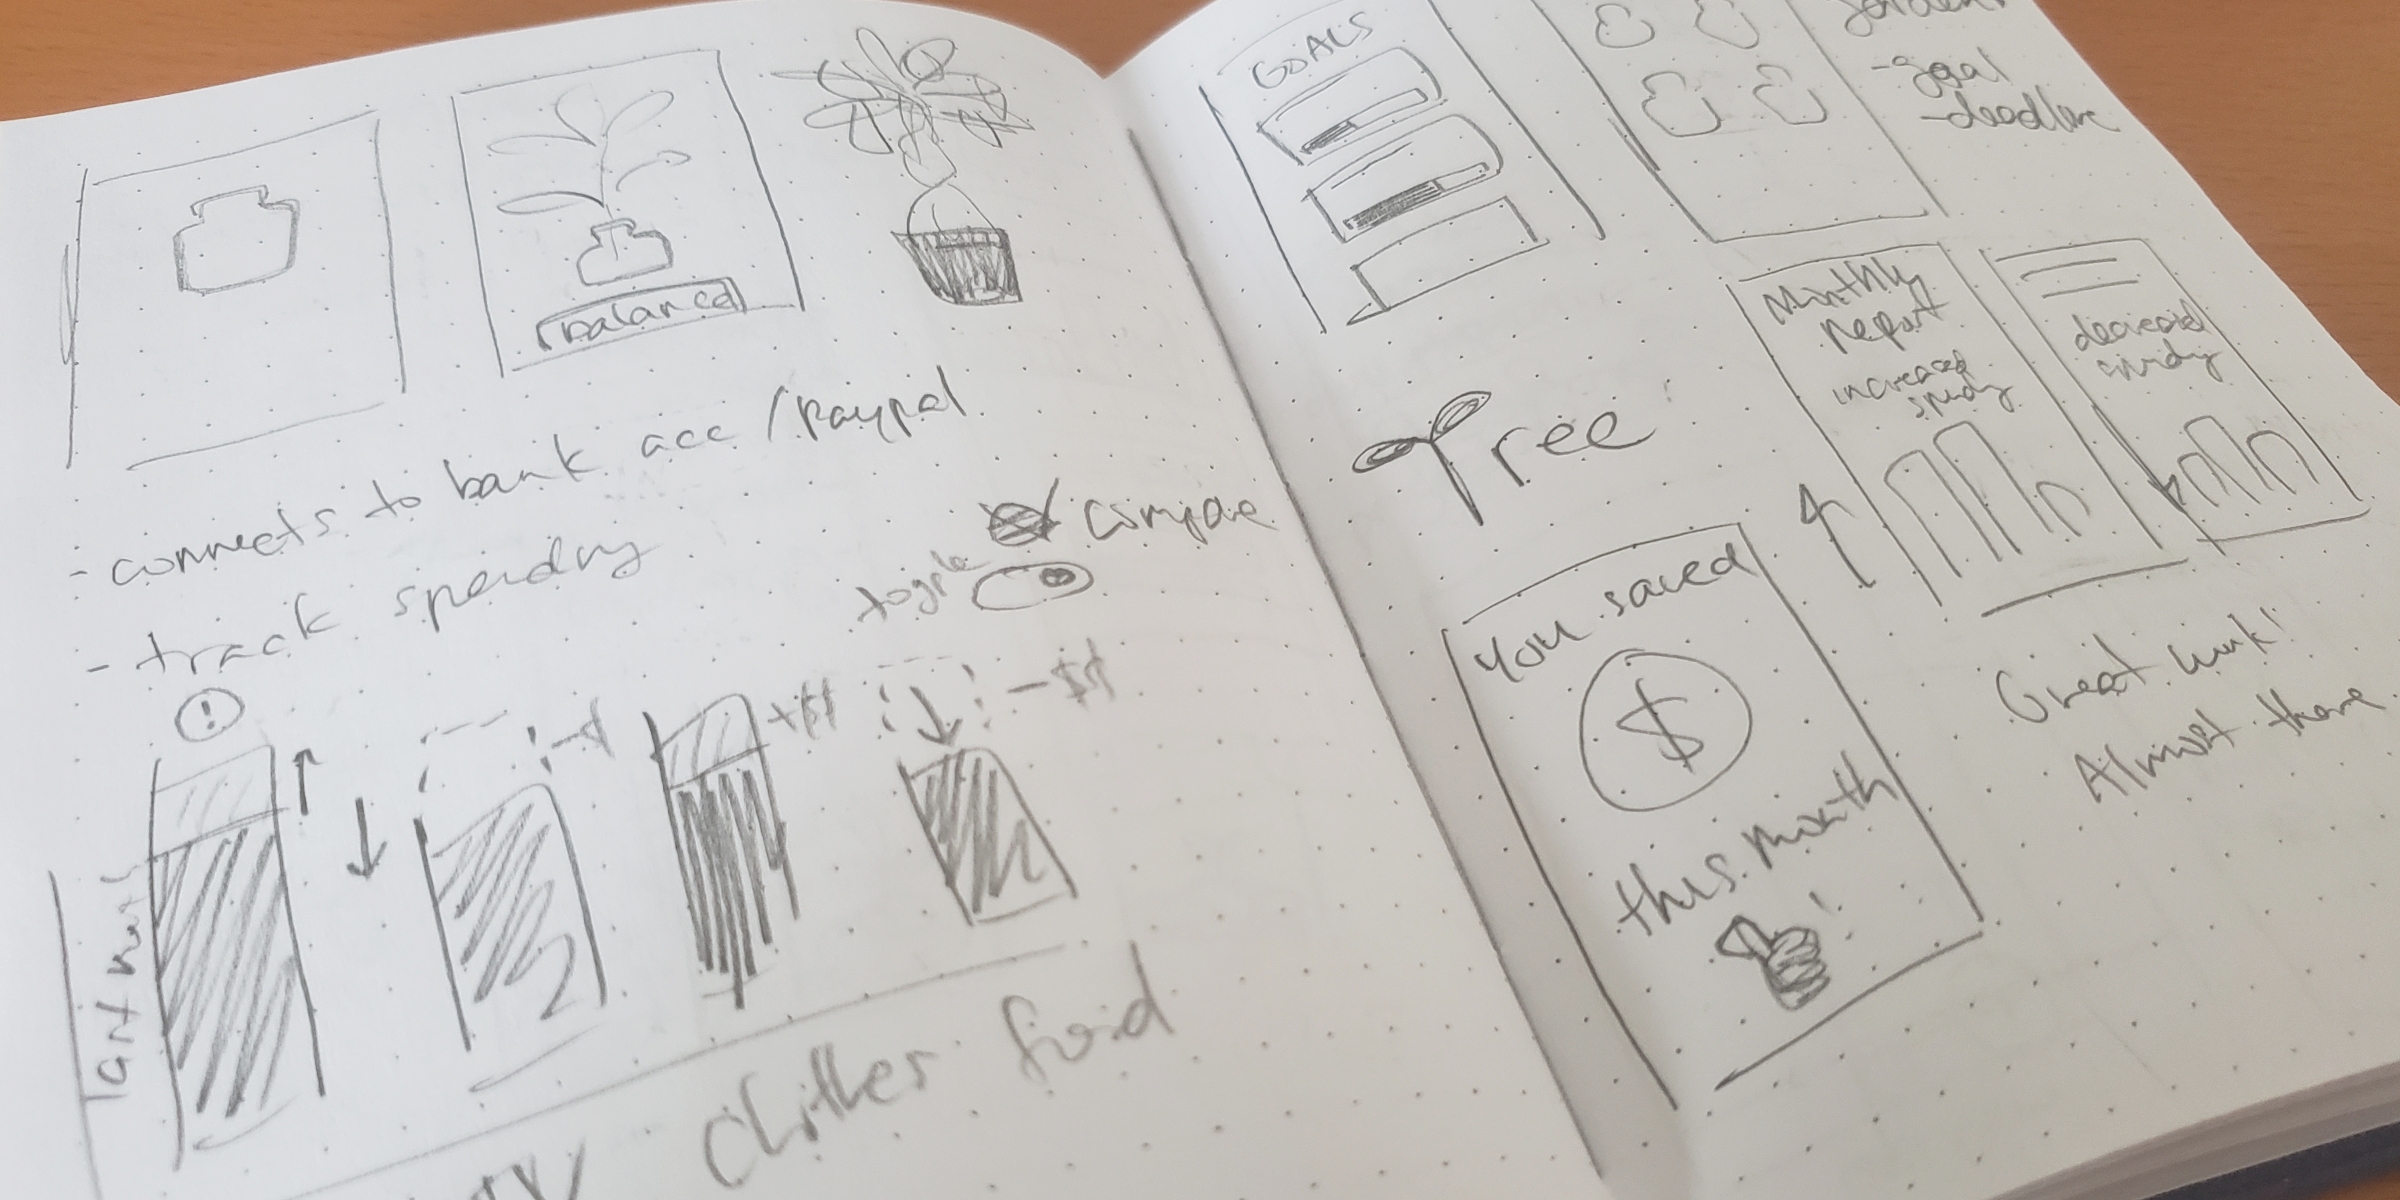 balanced
- connects to bank acc / paypal
- track spending
compare
toggle
!
-$
+$$
-$$
last
clothes food
GOALS
- goal
- deadline
Tree
Monthly
Report
increased
decreased
You saved
$
this month
!
Great work!
Almost there